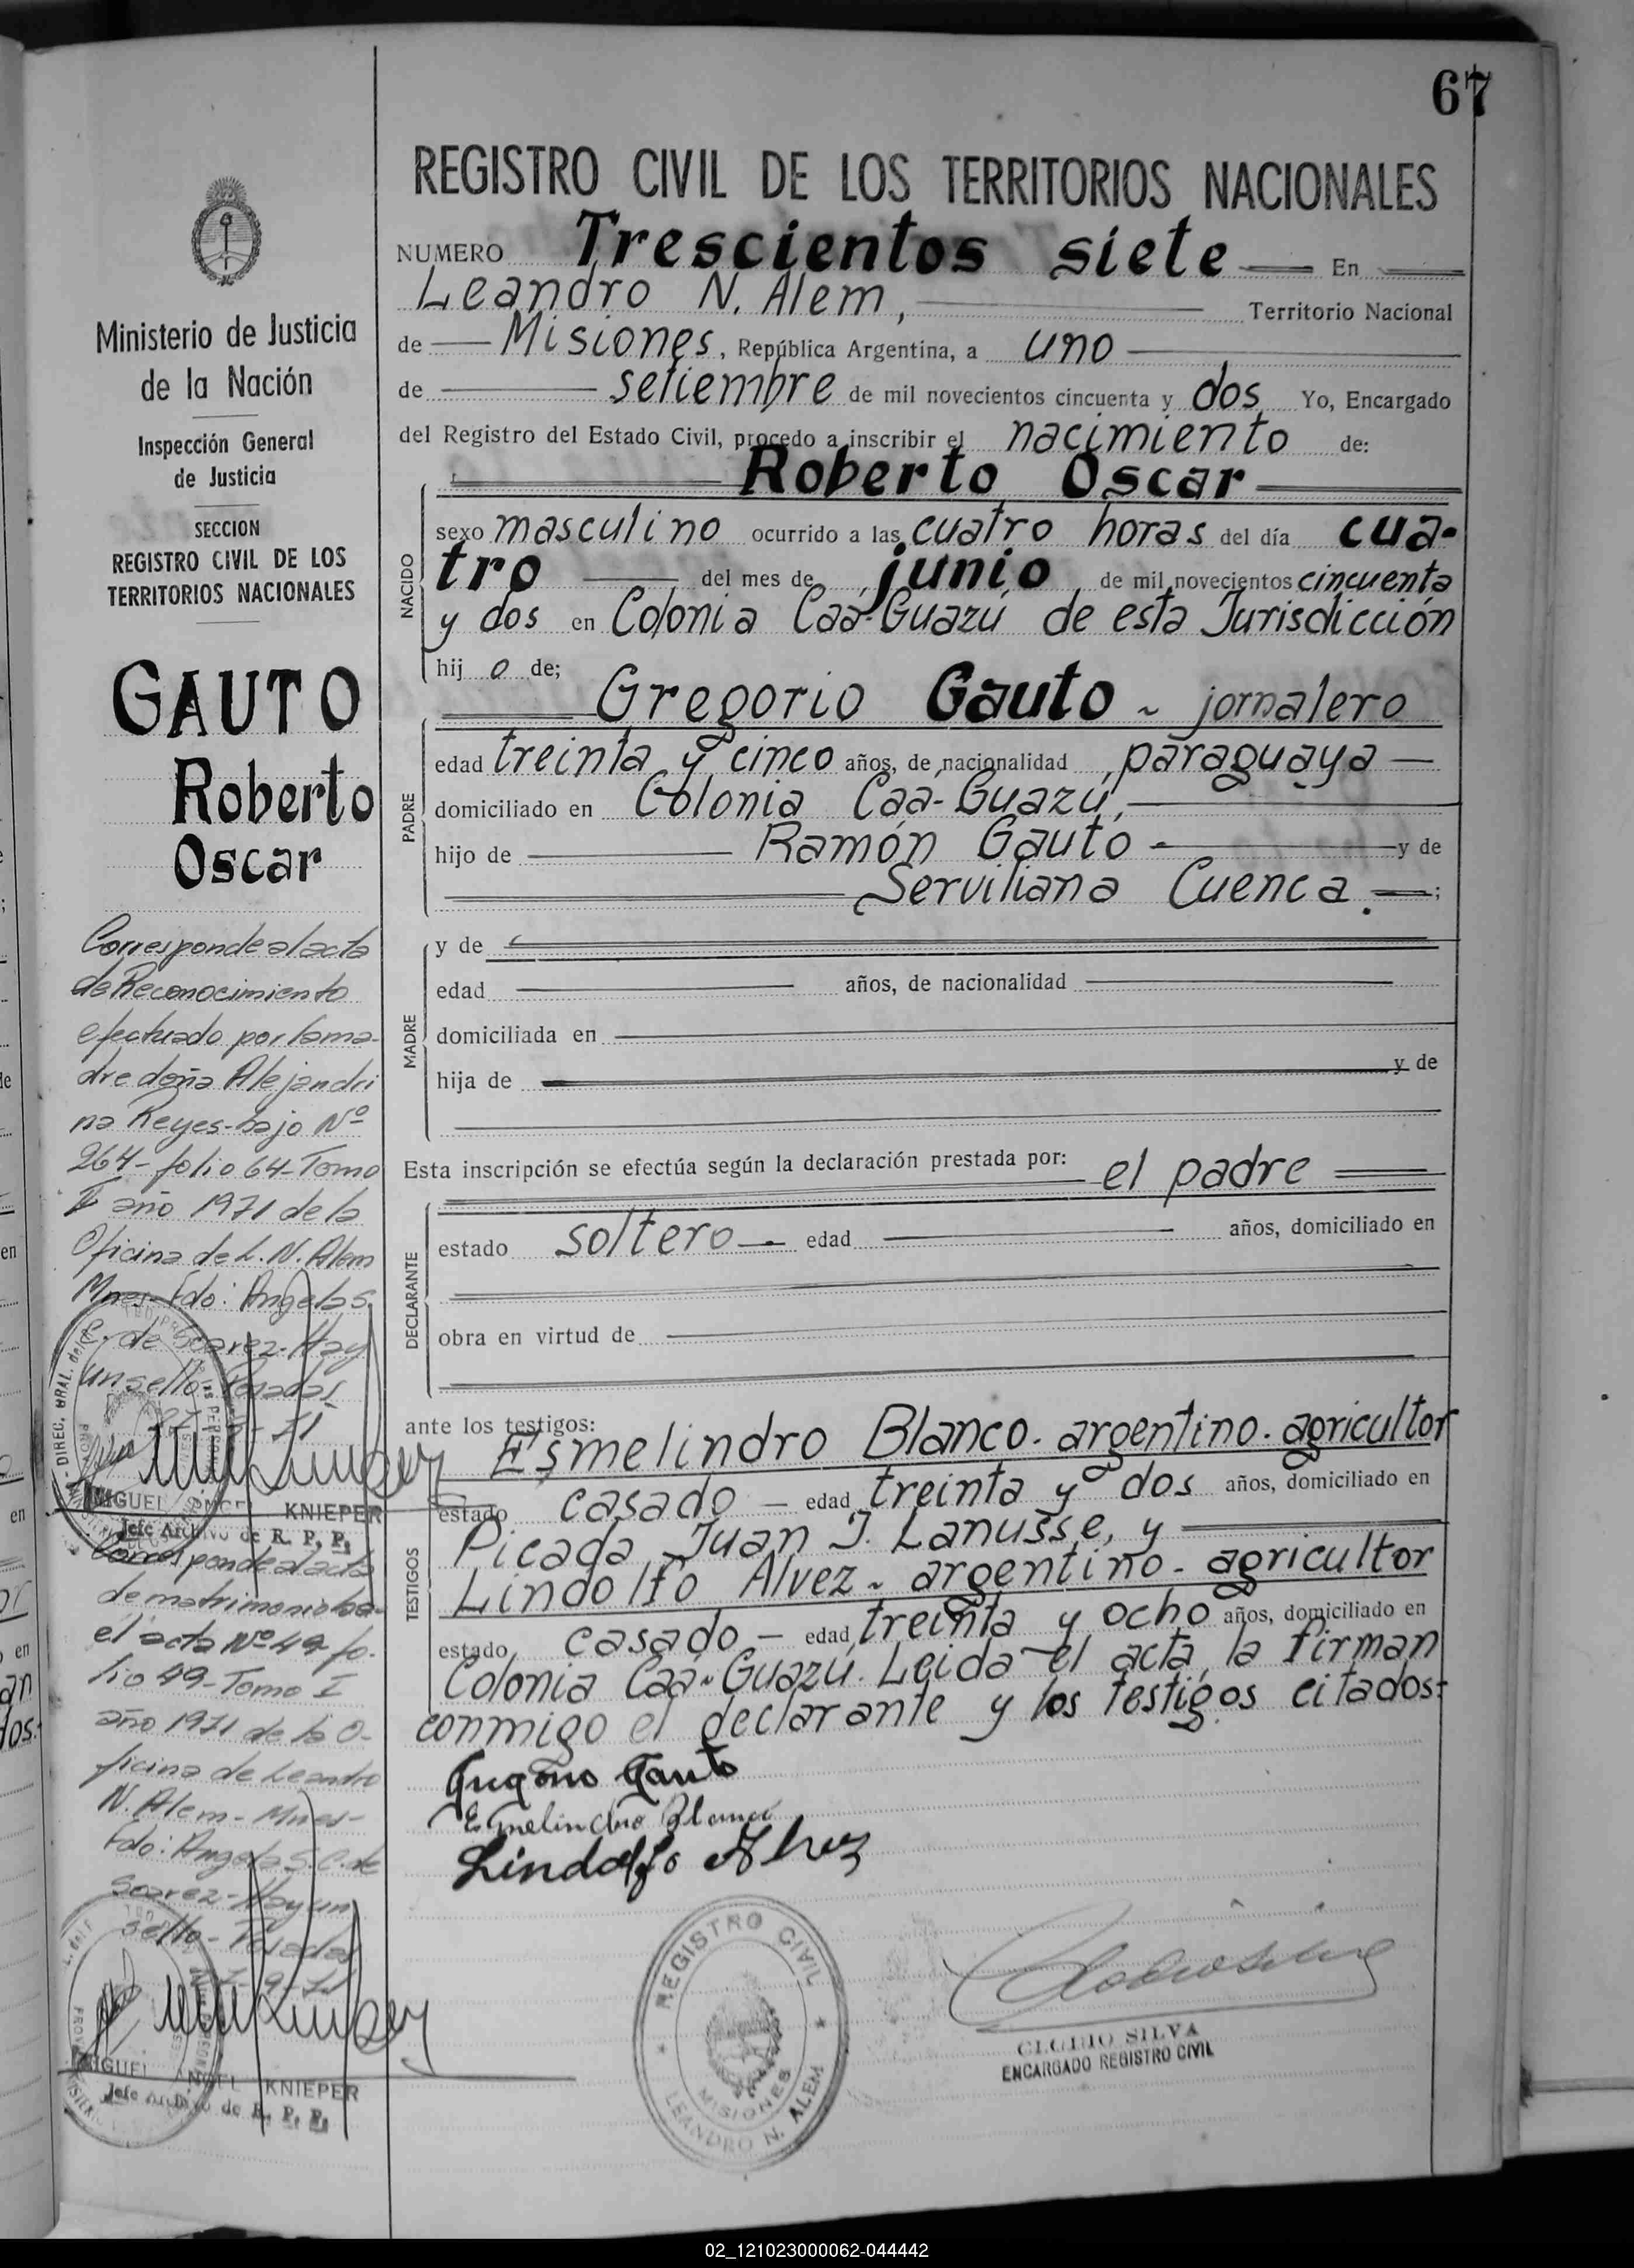 67
REGISTRO CIVIL DE LOS TERRITORIOS NACIONALES
NUMERO Trescientos siete En
Leandro N. Alem, Territorio Nacional
de Misiones, República Argentina, a uno
de setiembre de mil novecientos cincuenta y dos Yo, Encargado
del Registro del Estado Civil, procedo a inscribir el nacimiento de:
Roberto Oscar
NACIDO
sexo masculino ocurrido a las cuatro horas del día cua-
tro del mes de junio de mil novecientos cincuenta
y dos en Colonia Caa-Guazú de esta Jurisdicción
hij o de;
Gregorio Gauto - jornalero
PADRE
edad treinta y cinco años, de nacionalidad paraguaya
domiciliado en Colonia Caa-Guazú,
hijo de Ramón Gauto y de
Serviliana Cuenca.
MADRE
y de
edad años, de nacionalidad
domiciliada en
hija de y de
Esta inscripción se efectúa según la declaración prestada por: el padre
DECLARANTE
estado soltero edad años, domiciliado en
obra en virtud de
ante los testigos:
Esmelindro Blanco. argentino. agricultor
TESTIGOS
estado casado edad treinta y dos años, domiciliado en
Picada Juan J. Lanusse, y
Lindolfo Alvez - argentino - agricultor
estado casado edad treinta y ocho años, domiciliado en
Colonia Caa-Guazú. Leida el acta, la firman
conmigo el declarante y los testigos citados:
Gauto
Esmelindro Blanco
Lindolfo Alvez
REGISTRO CIVIL
MISIONES
LEANDRO N. ALEM
CLODIO SILVA
ENCARGADO REGISTRO CIVIL
Ministerio de Justicia
de la Nación
Inspección General
de Justicia
SECCION
REGISTRO CIVIL DE LOS
TERRITORIOS NACIONALES
GAUTO
Roberto
Oscar
Corresponde al acta
de Reconocimiento
efectuado por la ma-
dre doña Alejandri
na Reyes-bajo Nº
264-folio 64-Tomo
II año 1971 de la
Oficina de L. N. Alem
Mnes-Fdo: Angela S.
C. de Soarez-Hay
un sello-Posadas
MIGUEL ANGEL KNIEPER
Jefe Archivo de R. P. P.
Corresponde al acta
de matrimonio ba-
el acta Nº 49 fo-
lio 49-Tomo I
año 1971 de la O-
ficina de Leandro
N. Alem - Mnes-
Fdo: Angela S. C. de
Soarez-Hay un
sello-Posadas
MIGUEL ANGEL KNIEPER
Jefe Archivo de R. P. P.
02_121023000062-044442